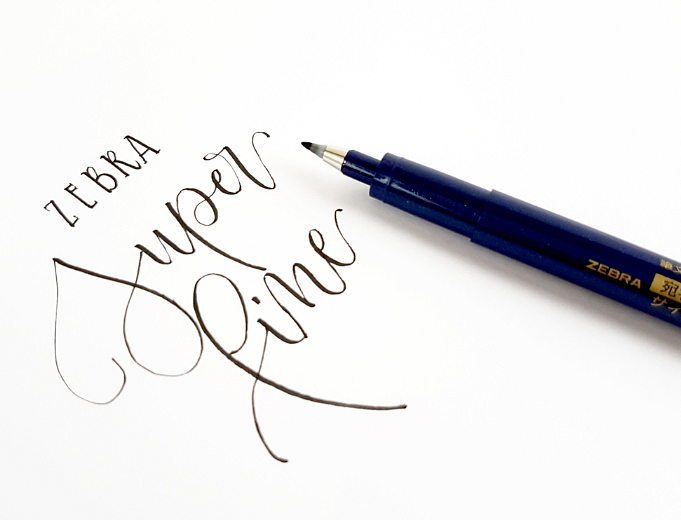 ZEBRA
Super
fine
ZEBRA